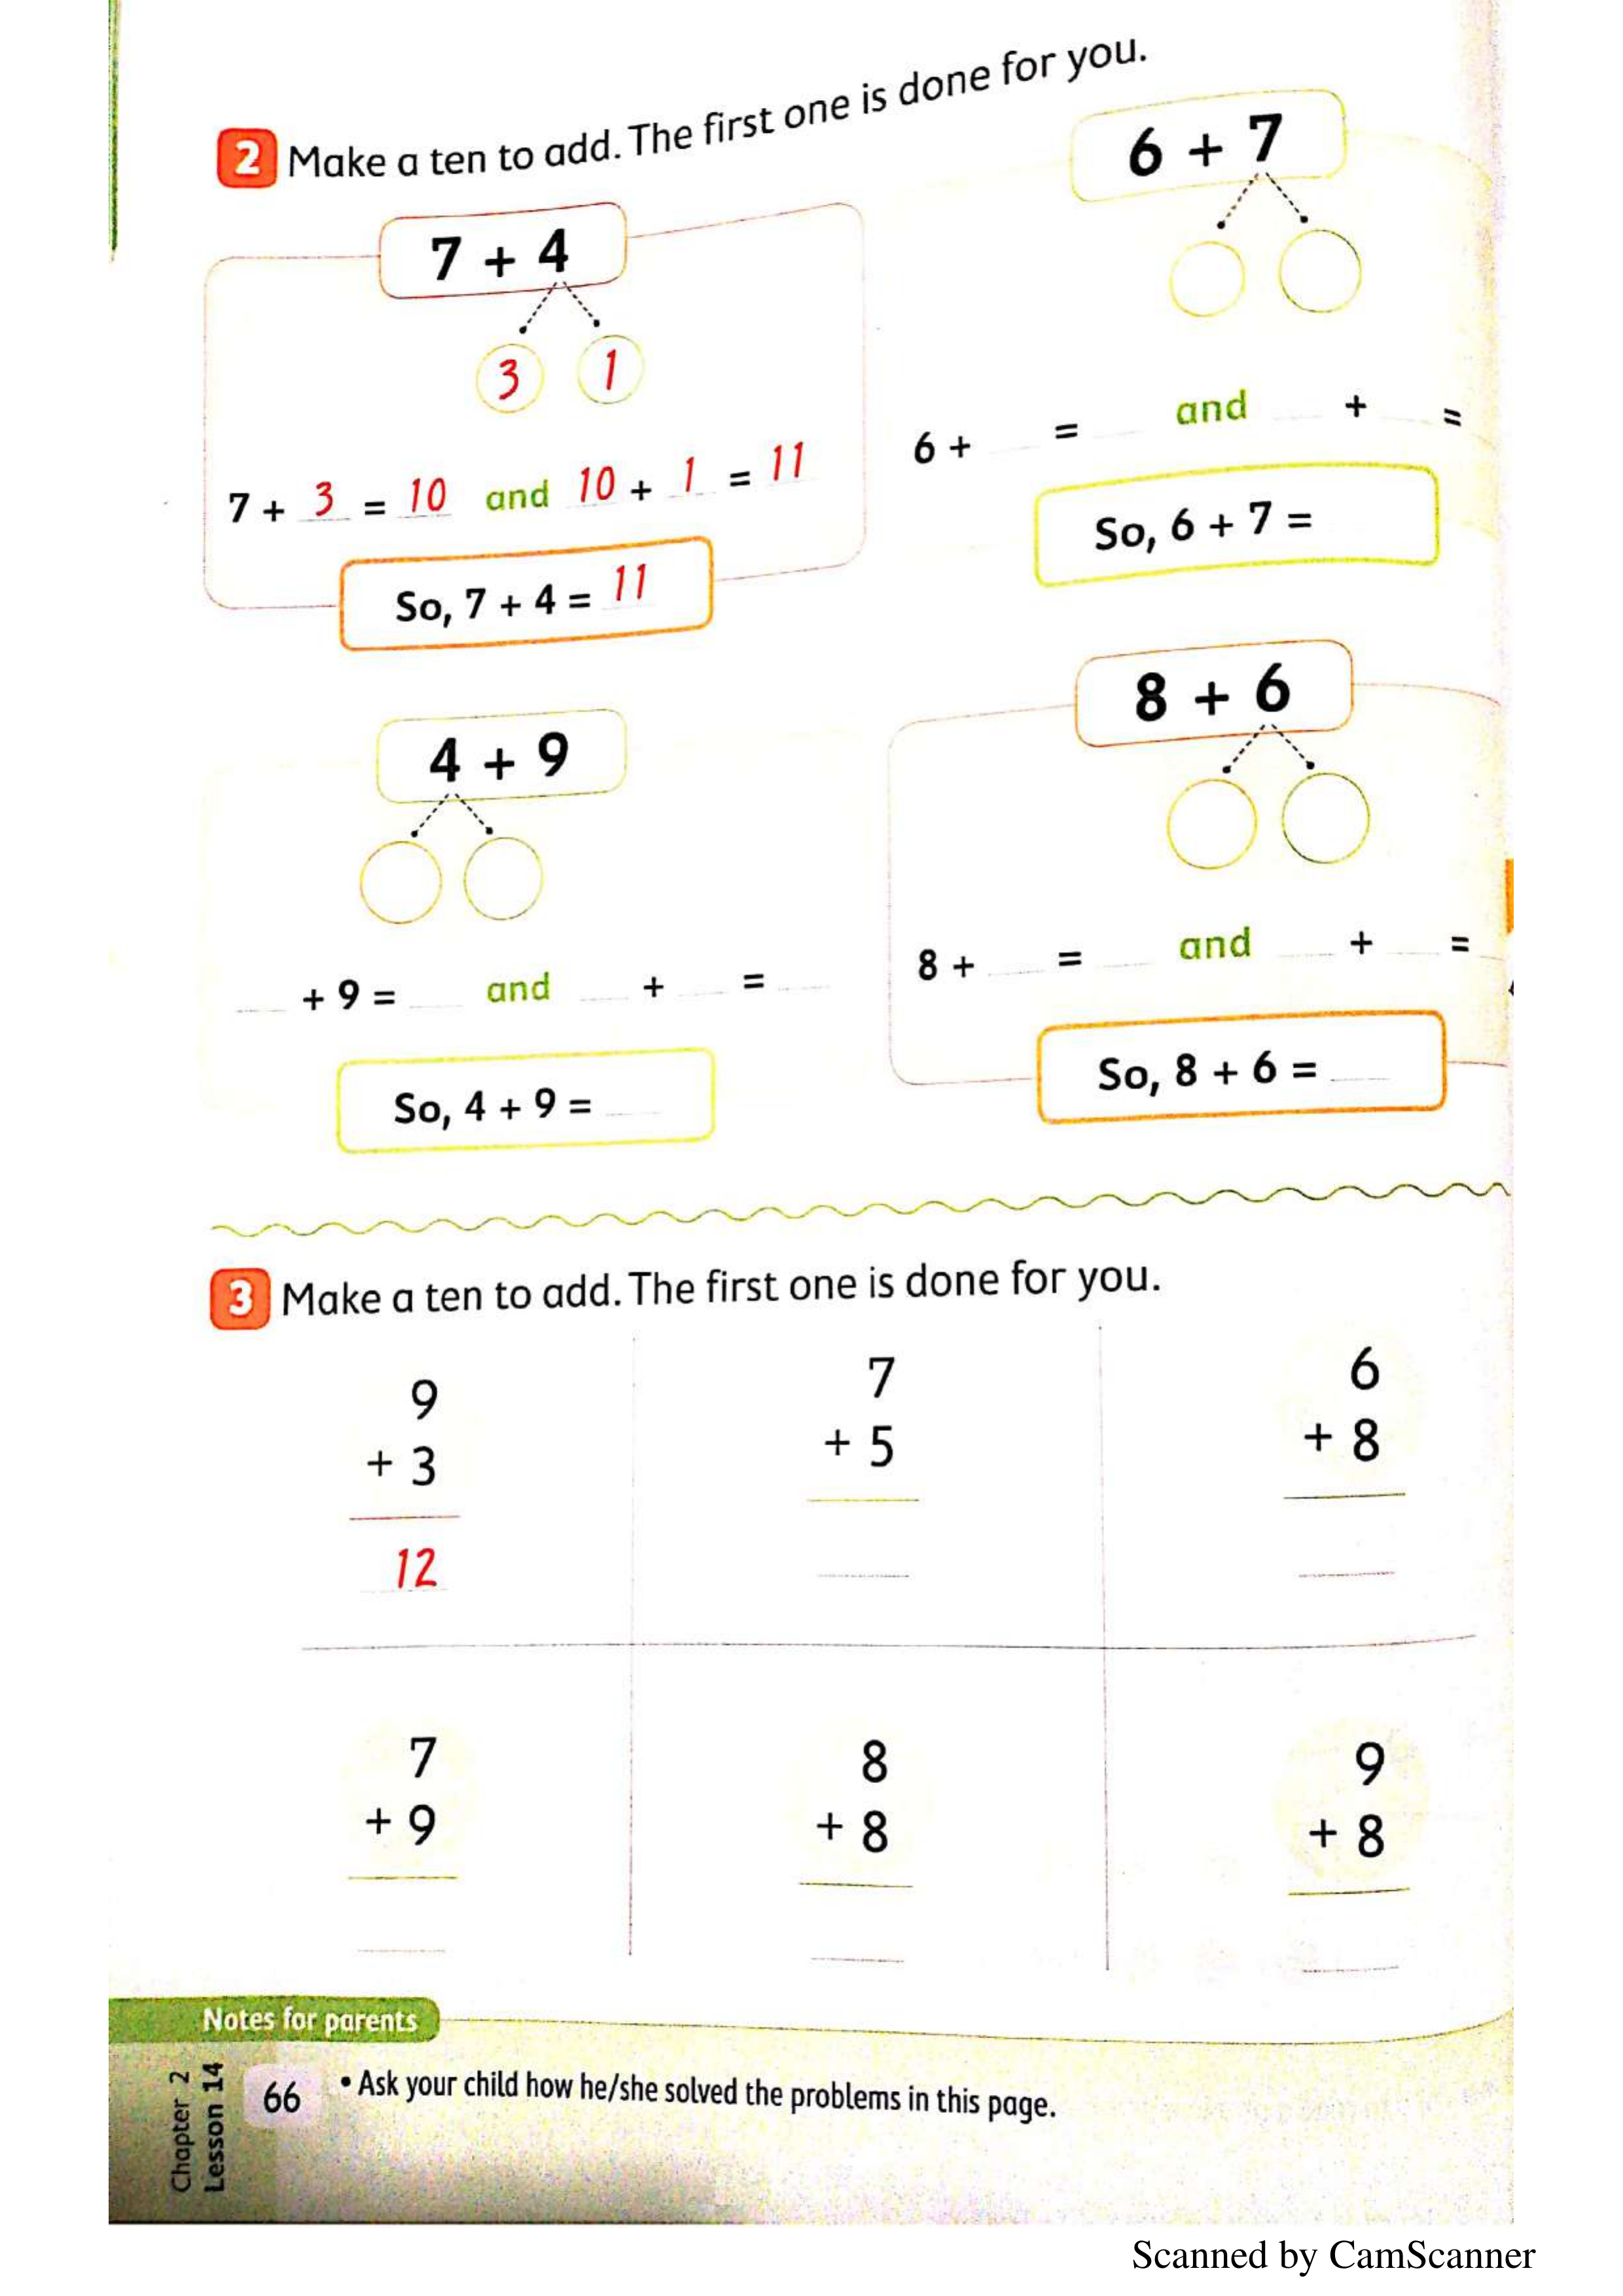 2 Make a ten to add. The first one is done for you.
7 + 4
3 1
7 + 3 = 10 and 10 + 1 = 11
So, 7 + 4 = 11
6 + 7
6 + = and + =
So, 6 + 7 =
4 + 9
+ 9 = and + =
So, 4 + 9 =
8 + 6
8 + = and + =
So, 8 + 6 =
3 Make a ten to add. The first one is done for you.
9
+ 3
12
7
+ 5
6
+ 8
7
+ 9
8
+ 8
9
+ 8
Notes for parents
Chapter 2
Lesson 14
66
• Ask your child how he/she solved the problems in this page.
Scanned by CamScanner